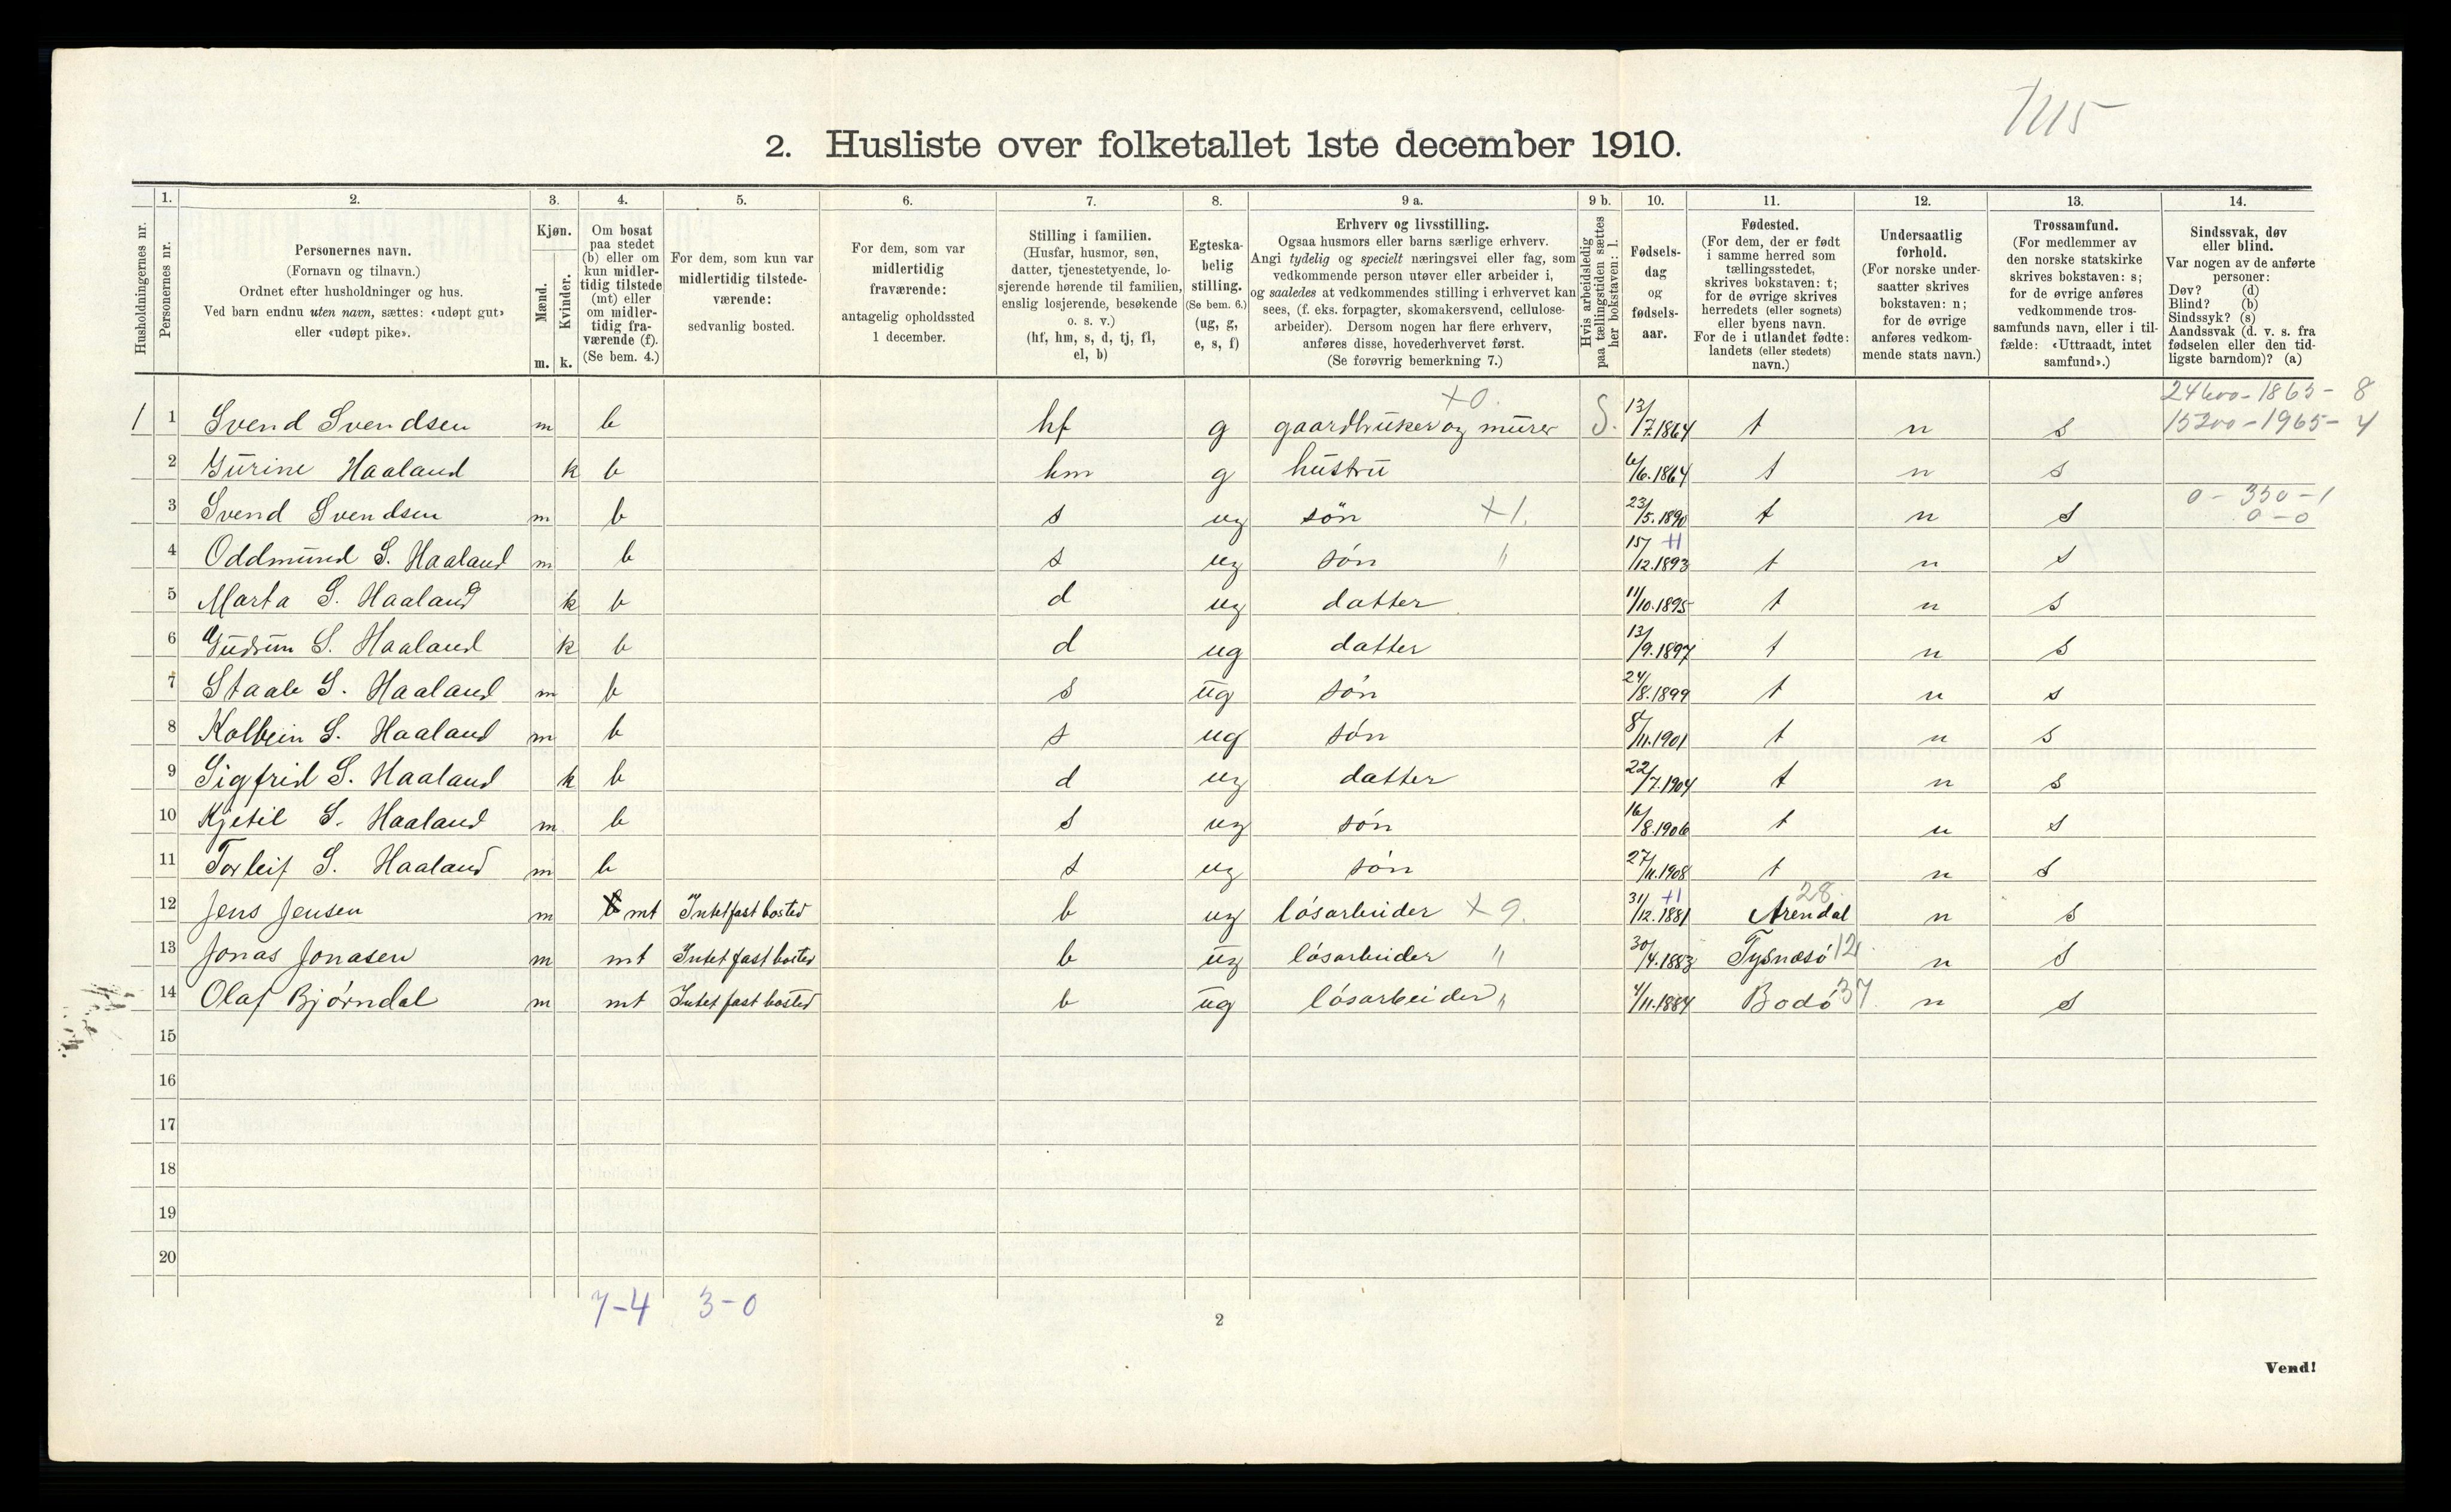 1115
2. Husliste over folketallet 1ste december 1910.
Husholdningernes nr.
1. Personernes nr.
2. Personernes navn. (Fornavn og tilnavn.) Ordnet efter husholdninger og hus. Ved barn endnu uten navn, sættes: «udøpt gut» eller «udøpt pike».
3. Kjøn. Mænd. m. Kvinder. k.
4. Om bosat paa stedet (b) eller om kun midlertidig tilstede (mt) eller om midlertidig fraværende (f). (Se bem. 4.)
5. For dem, som kun var midlertidig tilstedeværende: sedvanlig bosted.
6. For dem, som var midlertidig fraværende: antagelig opholdssted 1 december.
7. Stilling i familien. (Husfar, husmor, søn, datter, tjenestetyende, losjerende hørende til familien, enslig losjerende, besøkende o. s. v.) (hf, hm, s, d, tj, fl, el, b)
8. Egteskabelig stilling. (Se bem. 6.) (ug, g, e, s, f)
9 a. Erhverv og livsstilling. Ogsaa husmors eller barns særlige erhverv. Angi tydelig og specielt næringsvei eller fag, som vedkommende person utøver eller arbeider i, og saaledes at vedkommendes stilling i erhvervet kan sees, (f. eks. forpagter, skomakersvend, cellulosearbeider). Dersom nogen har flere erhverv, anføres disse, hovederhvervet først. (Se forøvrig bemerkning 7.)
9 b. Hvis arbeidsledig paa tællingstiden sættes her bokstaven: l.
10. Fødselsdag og fødselsaar.
11. Fødested. (For dem, der er født i samme herred som tællingsstedet, skrives bokstaven: t; for de øvrige skrives herredets (eller sognets) eller byens navn. For de i utlandet fødte: landets (eller stedets) navn.)
12. Undersaatlig forhold. (For norske undersaatter skrives bokstaven: n; for de øvrige anføres vedkommende stats navn.)
13. Trossamfund. (For medlemmer av den norske statskirke skrives bokstaven: s; for de øvrige anføres vedkommende trossamfunds navn, eller i tilfælde: «Uttraadt, intet samfund».)
14. Sindssvak, døv eller blind. Var nogen av de anførte personer: Døv? (d) Blind? (b) Sindssyk? (s) Aandssvak (d. v. s. fra fødselen eller den tidligste barndom)? (a)
24600-1865-8
1 1 Svend Svendsen m b hf g gaardbruker og murer +0. S. 13/7.1864 t n s 15200-1965-4
2 Gurine Haaland k b hm g hustru 6/6.1864 t n s
3 Svend Svendsen m b s ug søn +1. 23/5.1890 t n s 0-350-1 0-0
4 Oddmund S. Haaland m b s ug søn " 15/12.1893 +1 t n s
5 Marta S. Haaland k b d ug datter 11/10.1895 t n s
6 Gudrun S. Haaland k b d ug datter 13/9.1897 t n s
7 Staale S. Haaland m b s ug søn 24/8.1899 t n s
8 Kolbein S. Haaland m b s ug søn 8/11.1901 t n s
9 Sigfrid S. Haaland k b d ug datter 22/7.1904 t n s
10 Kjetil S. Haaland m b s ug søn 16/8.1906 t n s
11 Torleif S. Haaland m b s ug søn 27/11.1908 t n s
12 Jens Jensen m b mt Intet fast bosted b ug løsarbeider +9. 31/12.1881 +1 Arendal 28 n s
13 Jonas Jonasen m mt Intet fast bosted b ug løsarbeider " 30/4.1883 Tysnæsø 12 n s
14 Olaf Bjørndal m mt Intet fast bosted b ug løsarbeider " 4/11.1884 Bodø 37 n s
15
16
17
18
19
20
7-4 3-0
2
Vend!